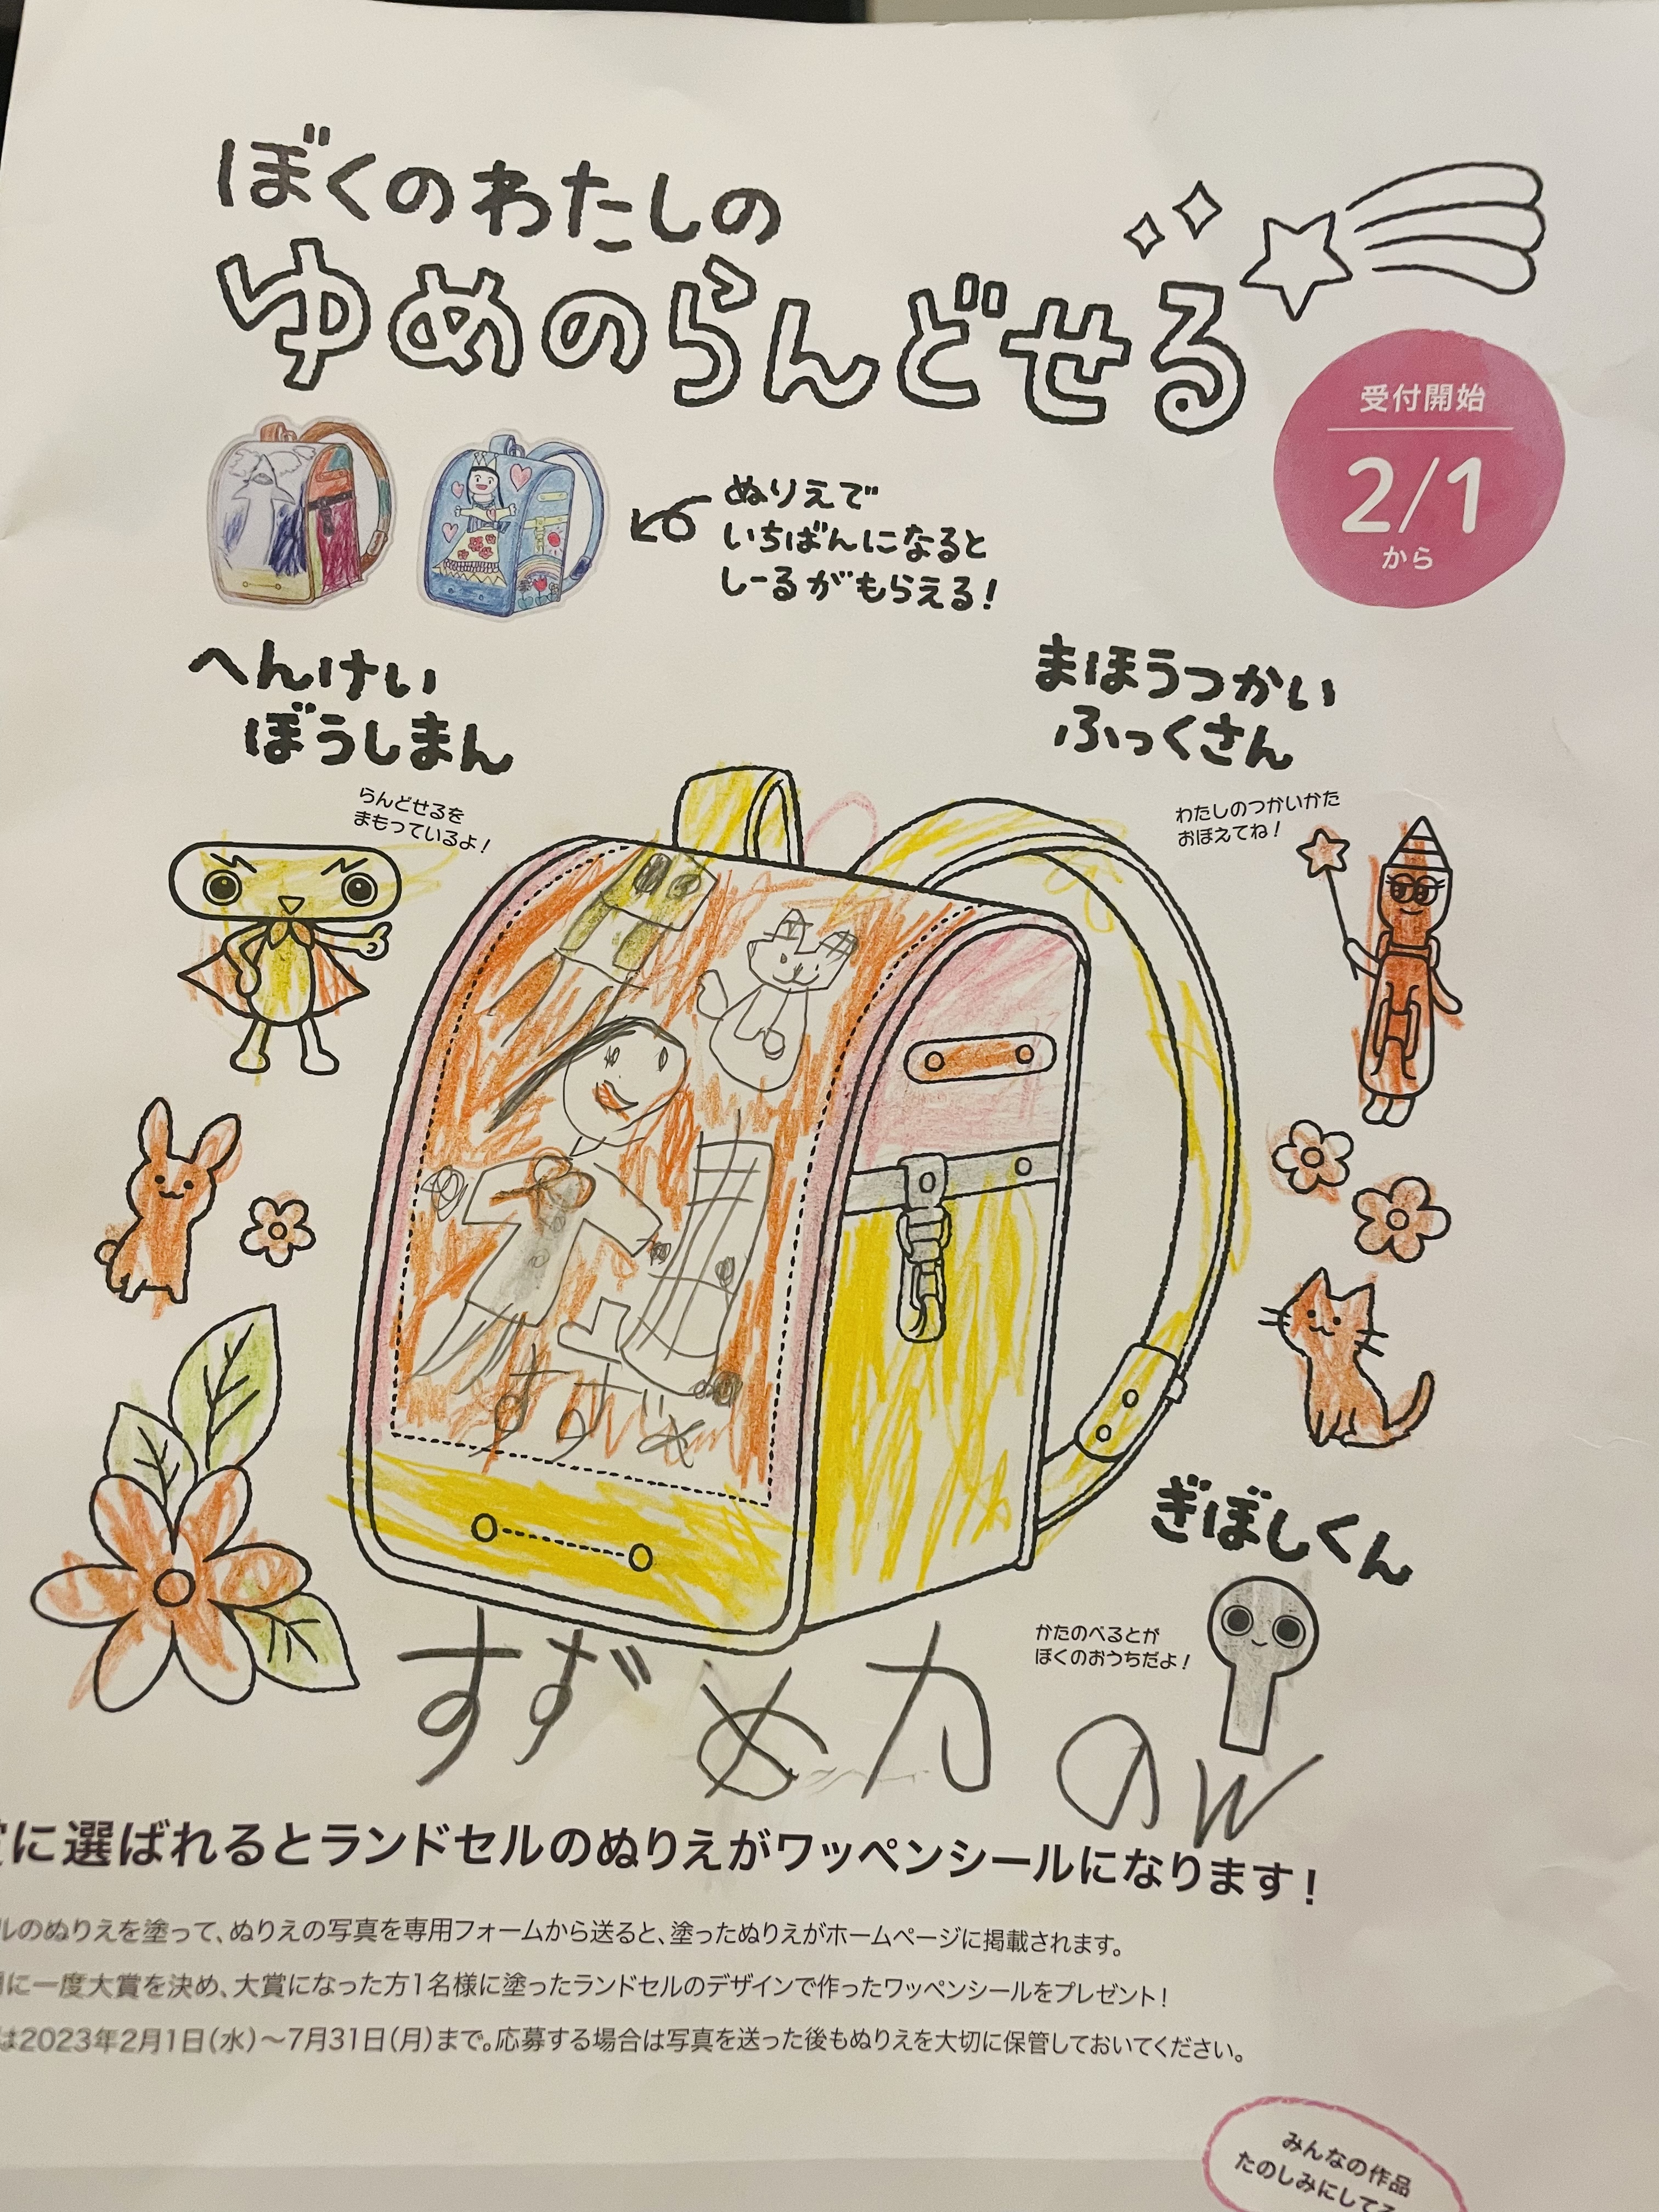 ぼくのわたしの
ゆめのらんどせる
受付開始
2/1
から
ぬりえで
いちばんになると
しーるがもらえる!
へんけい
ぼうしまん
らんどせるを
まもっているよ!
まほうつかい
ふっくさん
わたしのつかいかた
おぼえてね!
すずめ
ぎぼしくん
かたのべるとが
ぼくのおうちだよ!
すずめカの
に選ばれるとランドセルのぬりえがワッペンシールになります!
ルのぬりえを塗って、ぬりえの写真を専用フォームから送ると、塗ったぬりえがホームページに掲載されます。
に一度大賞を決め、大賞になった方1名様に塗ったランドセルのデザインで作ったワッペンシールをプレゼント!
は2023年2月1日(水)〜7月31日(月)まで。応募する場合は写真を送った後もぬりえを大切に保管しておいてください。
みんなの作品
たのしみにしてる